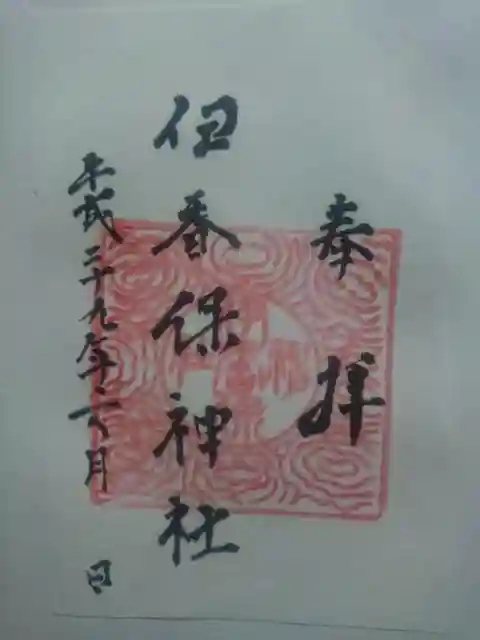 奉拝
伊香保神社
平成二十九年二月 日